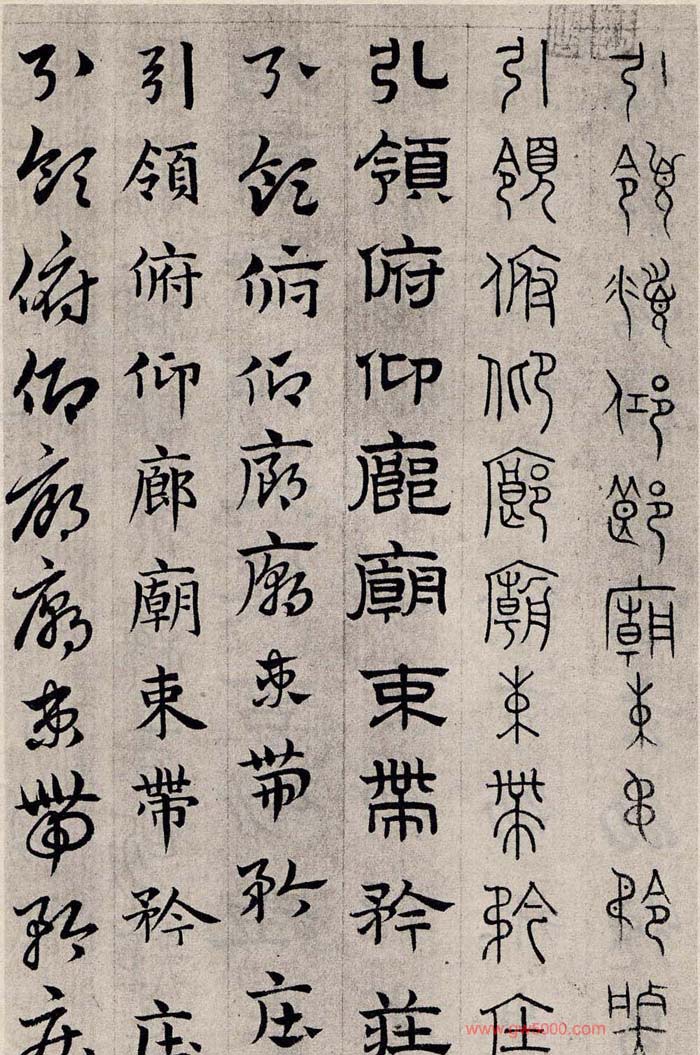 引領俯仰廊廟束帶矜莊
引領俯仰廊廟束帶矜莊
引領俯仰廊廟束帶矜莊
引領俯仰廊廟束帶矜庄
引領俯仰廊廟束帶矜庄
引領俯仰廊廟束帶矜庄
www.gw5000.com